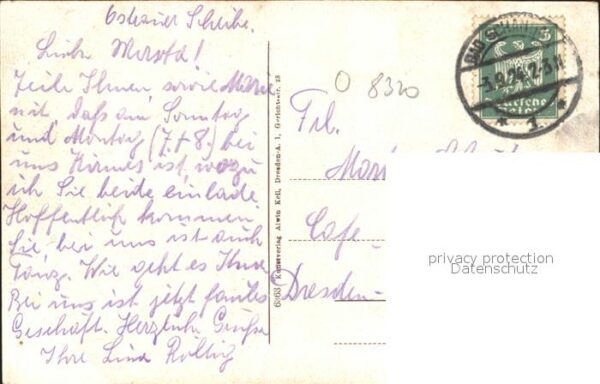 Ostrauer Scheibe.
Liebe Martha!
Teile Ihnen, sowie Marie
mit, daß am Sonntag
und Montag (7.+8.) bei
uns Kirmes ist, wozu
ich Sie beide einlade
Hoffentlich kommen
Sie, bei uns ist auch
Tanz. Wie geht es Ihnen
Bei uns ist jetzt faules
Geschäft. Herzliche Grüße
Ihre Lina Röllig
6963 Kunstverlag Alwin Keil, Dresden-A. 1, Gerichtsstr. 25
O 8320
BAD SCHAN
3.9.24. 2-3 N
* 1. *
5
Deutsches
Reich
Frl.
Café
Dresden-
privacy protection
Datenschutz